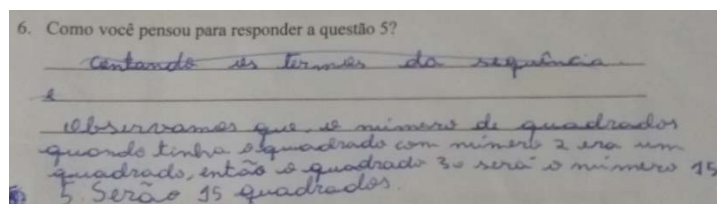 6. Como você pensou para responder a questão 5?
Contando os termos da sequência.
e
Observamos que o número de quadrados
quando tinha o quadrado com número 2 era um
quadrado, então o quadrado 30 será o número 15
5. Serão 15 quadrados.